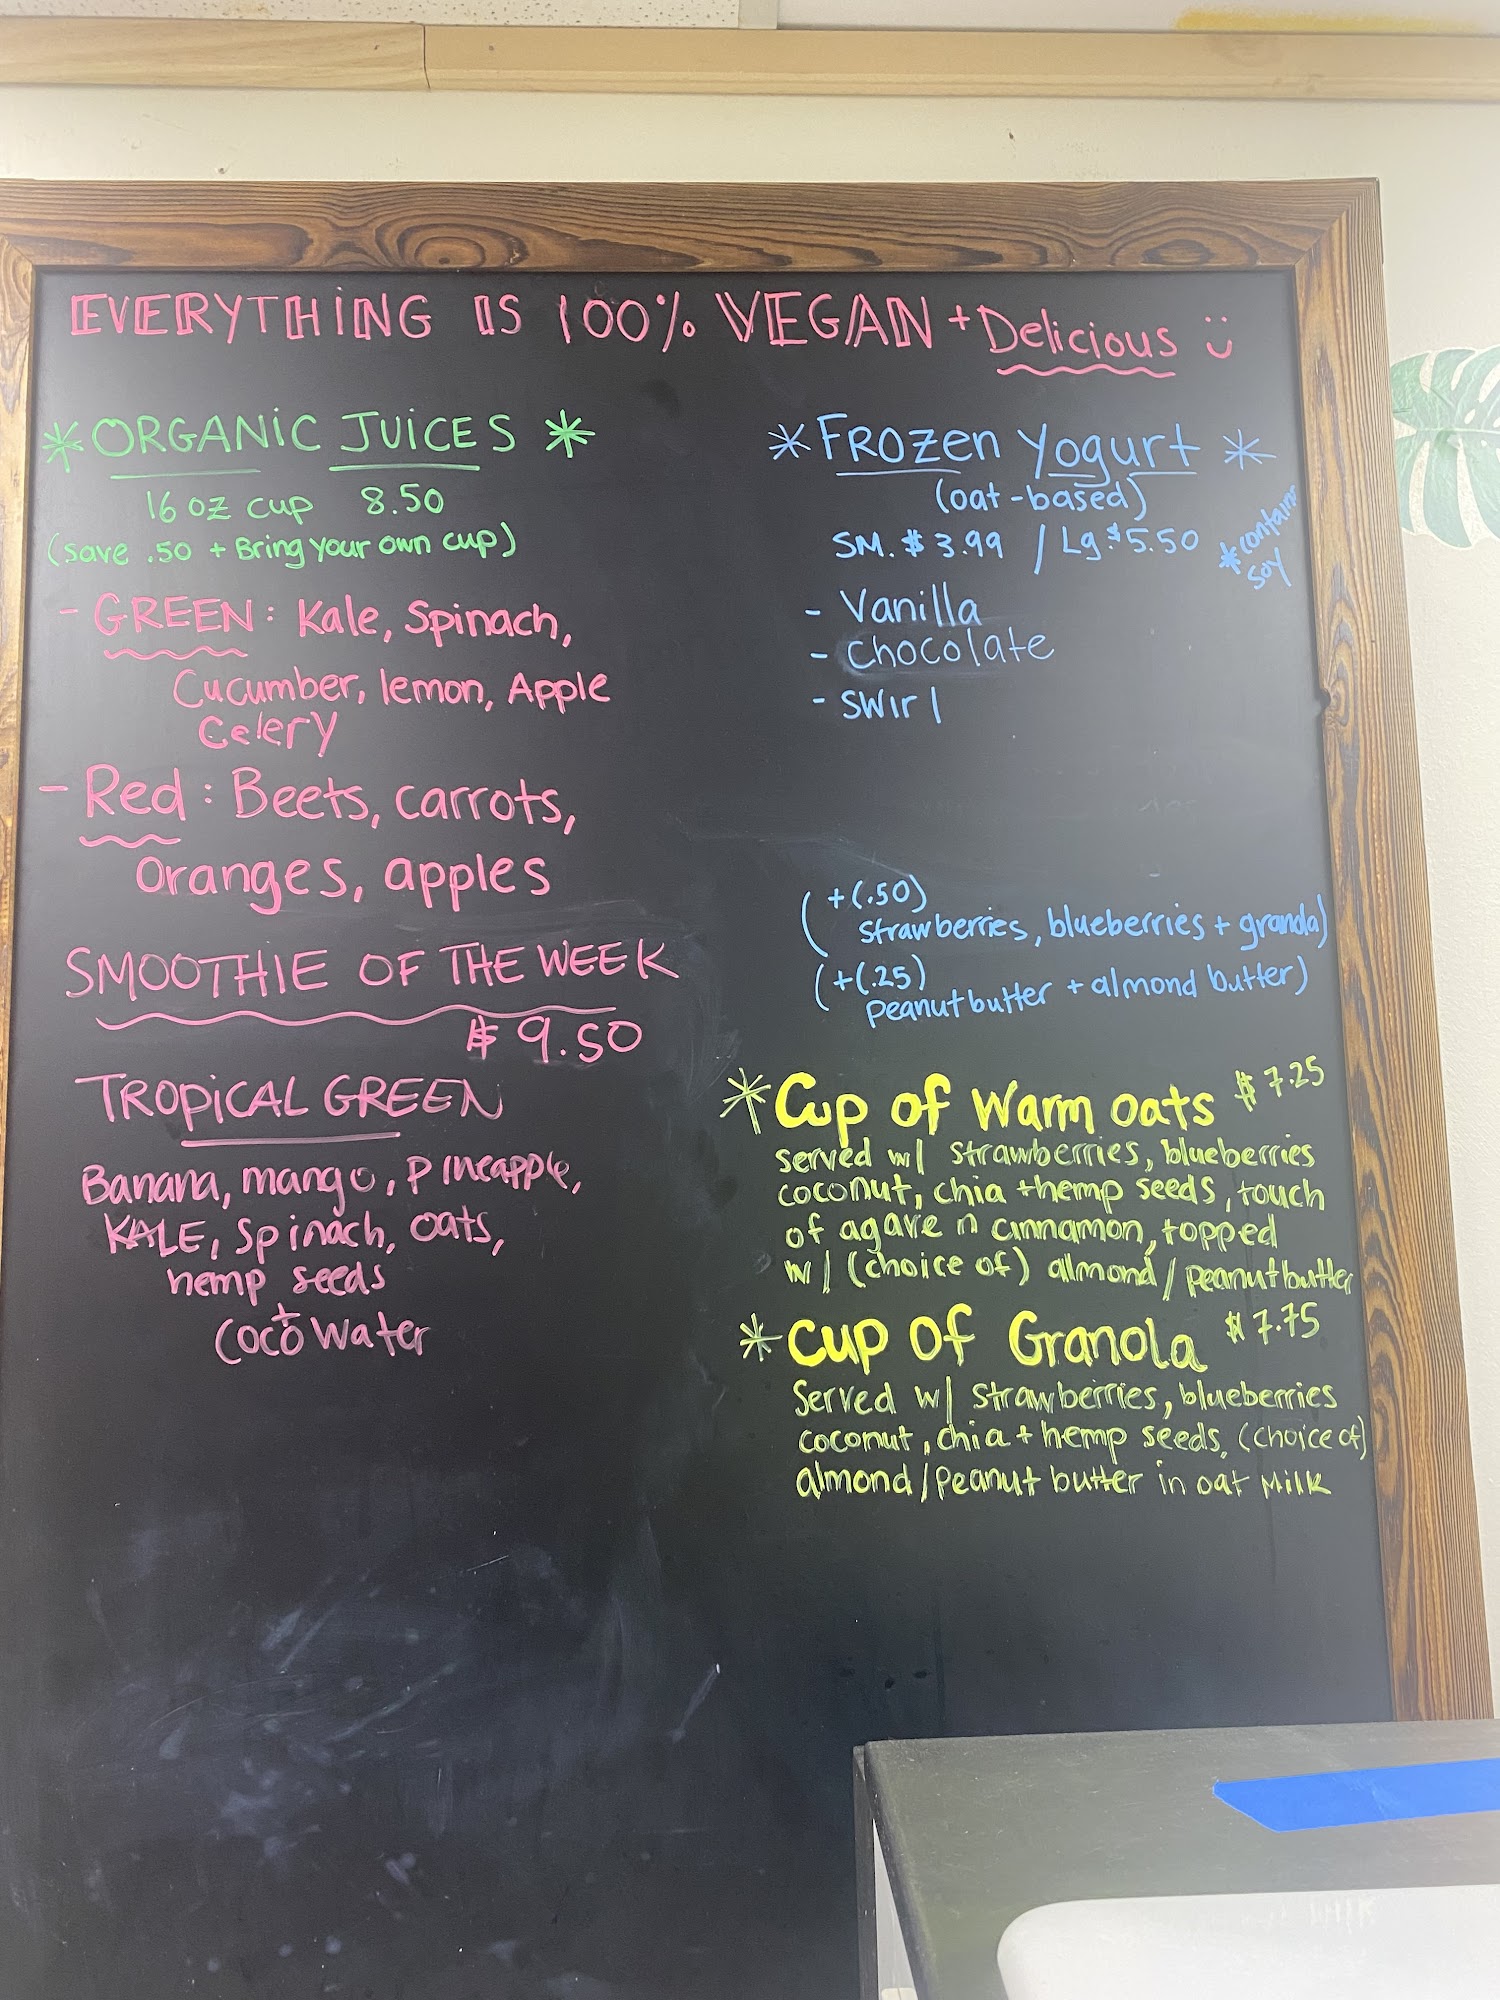 EVERYTHING IS 100% VEGAN + Delicious
* ORGANIC JUICES *
16 oz cup 8.50
(save .50 + Bring your own cup)
- GREEN: Kale, Spinach,
Cucumber, lemon, Apple
Celery
- Red: Beets, carrots,
Oranges, apples
SMOOTHIE OF THE WEEK
$ 9.50
TROPICAL GREEN
Banana, mango, Pineapple,
KALE, Spinach, oats,
hemp seeds
+
Coco Water
* FROZen Yogurt *
(oat-based)
SM. $ 3.99 / Lg $ 5.50
* contains
soy
- Vanilla
- Chocolate
- Swirl
(+(.50)
strawberries, blueberries + granola)
(+(.25)
Peanut butter + almond butter)
* Cup of Warm oats $ 7.25
served w/ strawberries, blueberries
coconut, chia + hemp seeds, touch
of agave n cinnamon, topped
w/ (choice of) almond / peanut butter
* Cup Of Granola $ 7.75
Served w/ strawberries, blueberries
coconut, chia + hemp seeds, (choice of)
almond / Peanut butter in oat Milk